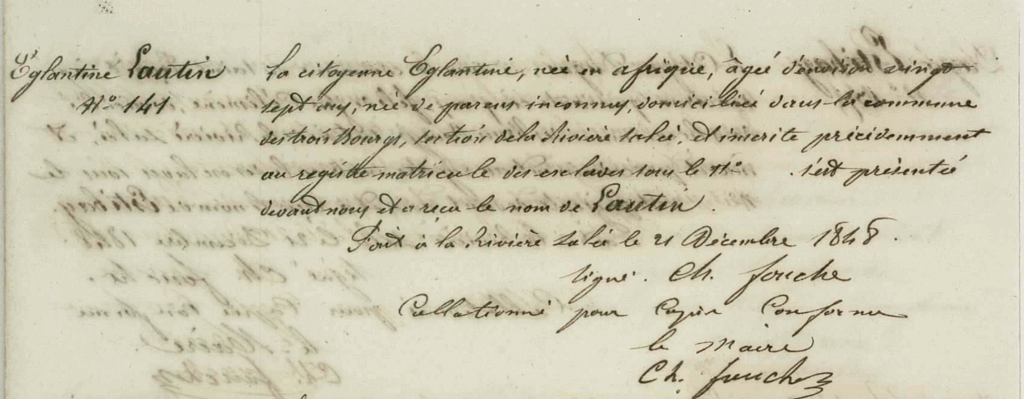 Eglantine Lautin
N° 141
la citoyenne Eglantine, née en afrique, âgée d'environ vingt
sept ans, née de parens inconnus, domiciliée dans la commune
des trois Bourgs, section de la Rivière salée, et inscrite précédemment
au registre matricule des esclaves sous le N° . s'est présentée
devant nous et a reçu le nom de Lautin.
Fait à la Rivière salée le 21 Décembre 1848.
signé. Ch. fouche
Collationné pour Copie Conforme
le maire
Ch. fouche